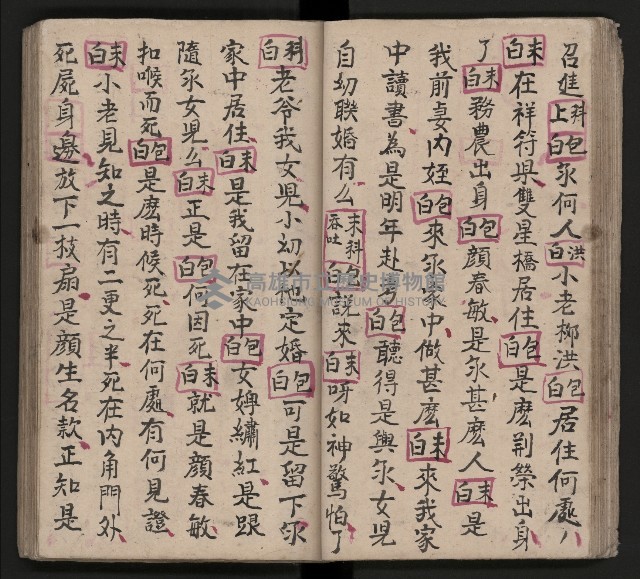 召進上科包白尔何人洪白小老柳洪包白居住何處
末白在祥符県雙星橋居住包白是麽荆榮出身
了末白務農出身包白顔春敏是尔甚麽人末白是
我前妾内姪包白來尔家中做甚麽末白來我家
中讀書為是明年赴包白聽得是與尔女児
自幼聯婚有么末科吞吐包白説來末白呀如神驚怕了
科白老爷我女児小幼以他定婚包白可是留下尔
家中居住末白是我留在家中包白女婢繡紅是跟
隨尔女児么末白正是包白何因死末白就是顔春敏
扣喉而死包白是麽時候死死在何處有何見證
末白小老見知之時有二更之半死在内角門外
死屍身邊放下一枝扇是顔生名款正知是
高雄市立歷史博物館
KAOHSIUNG MUSEUM OF HISTORY